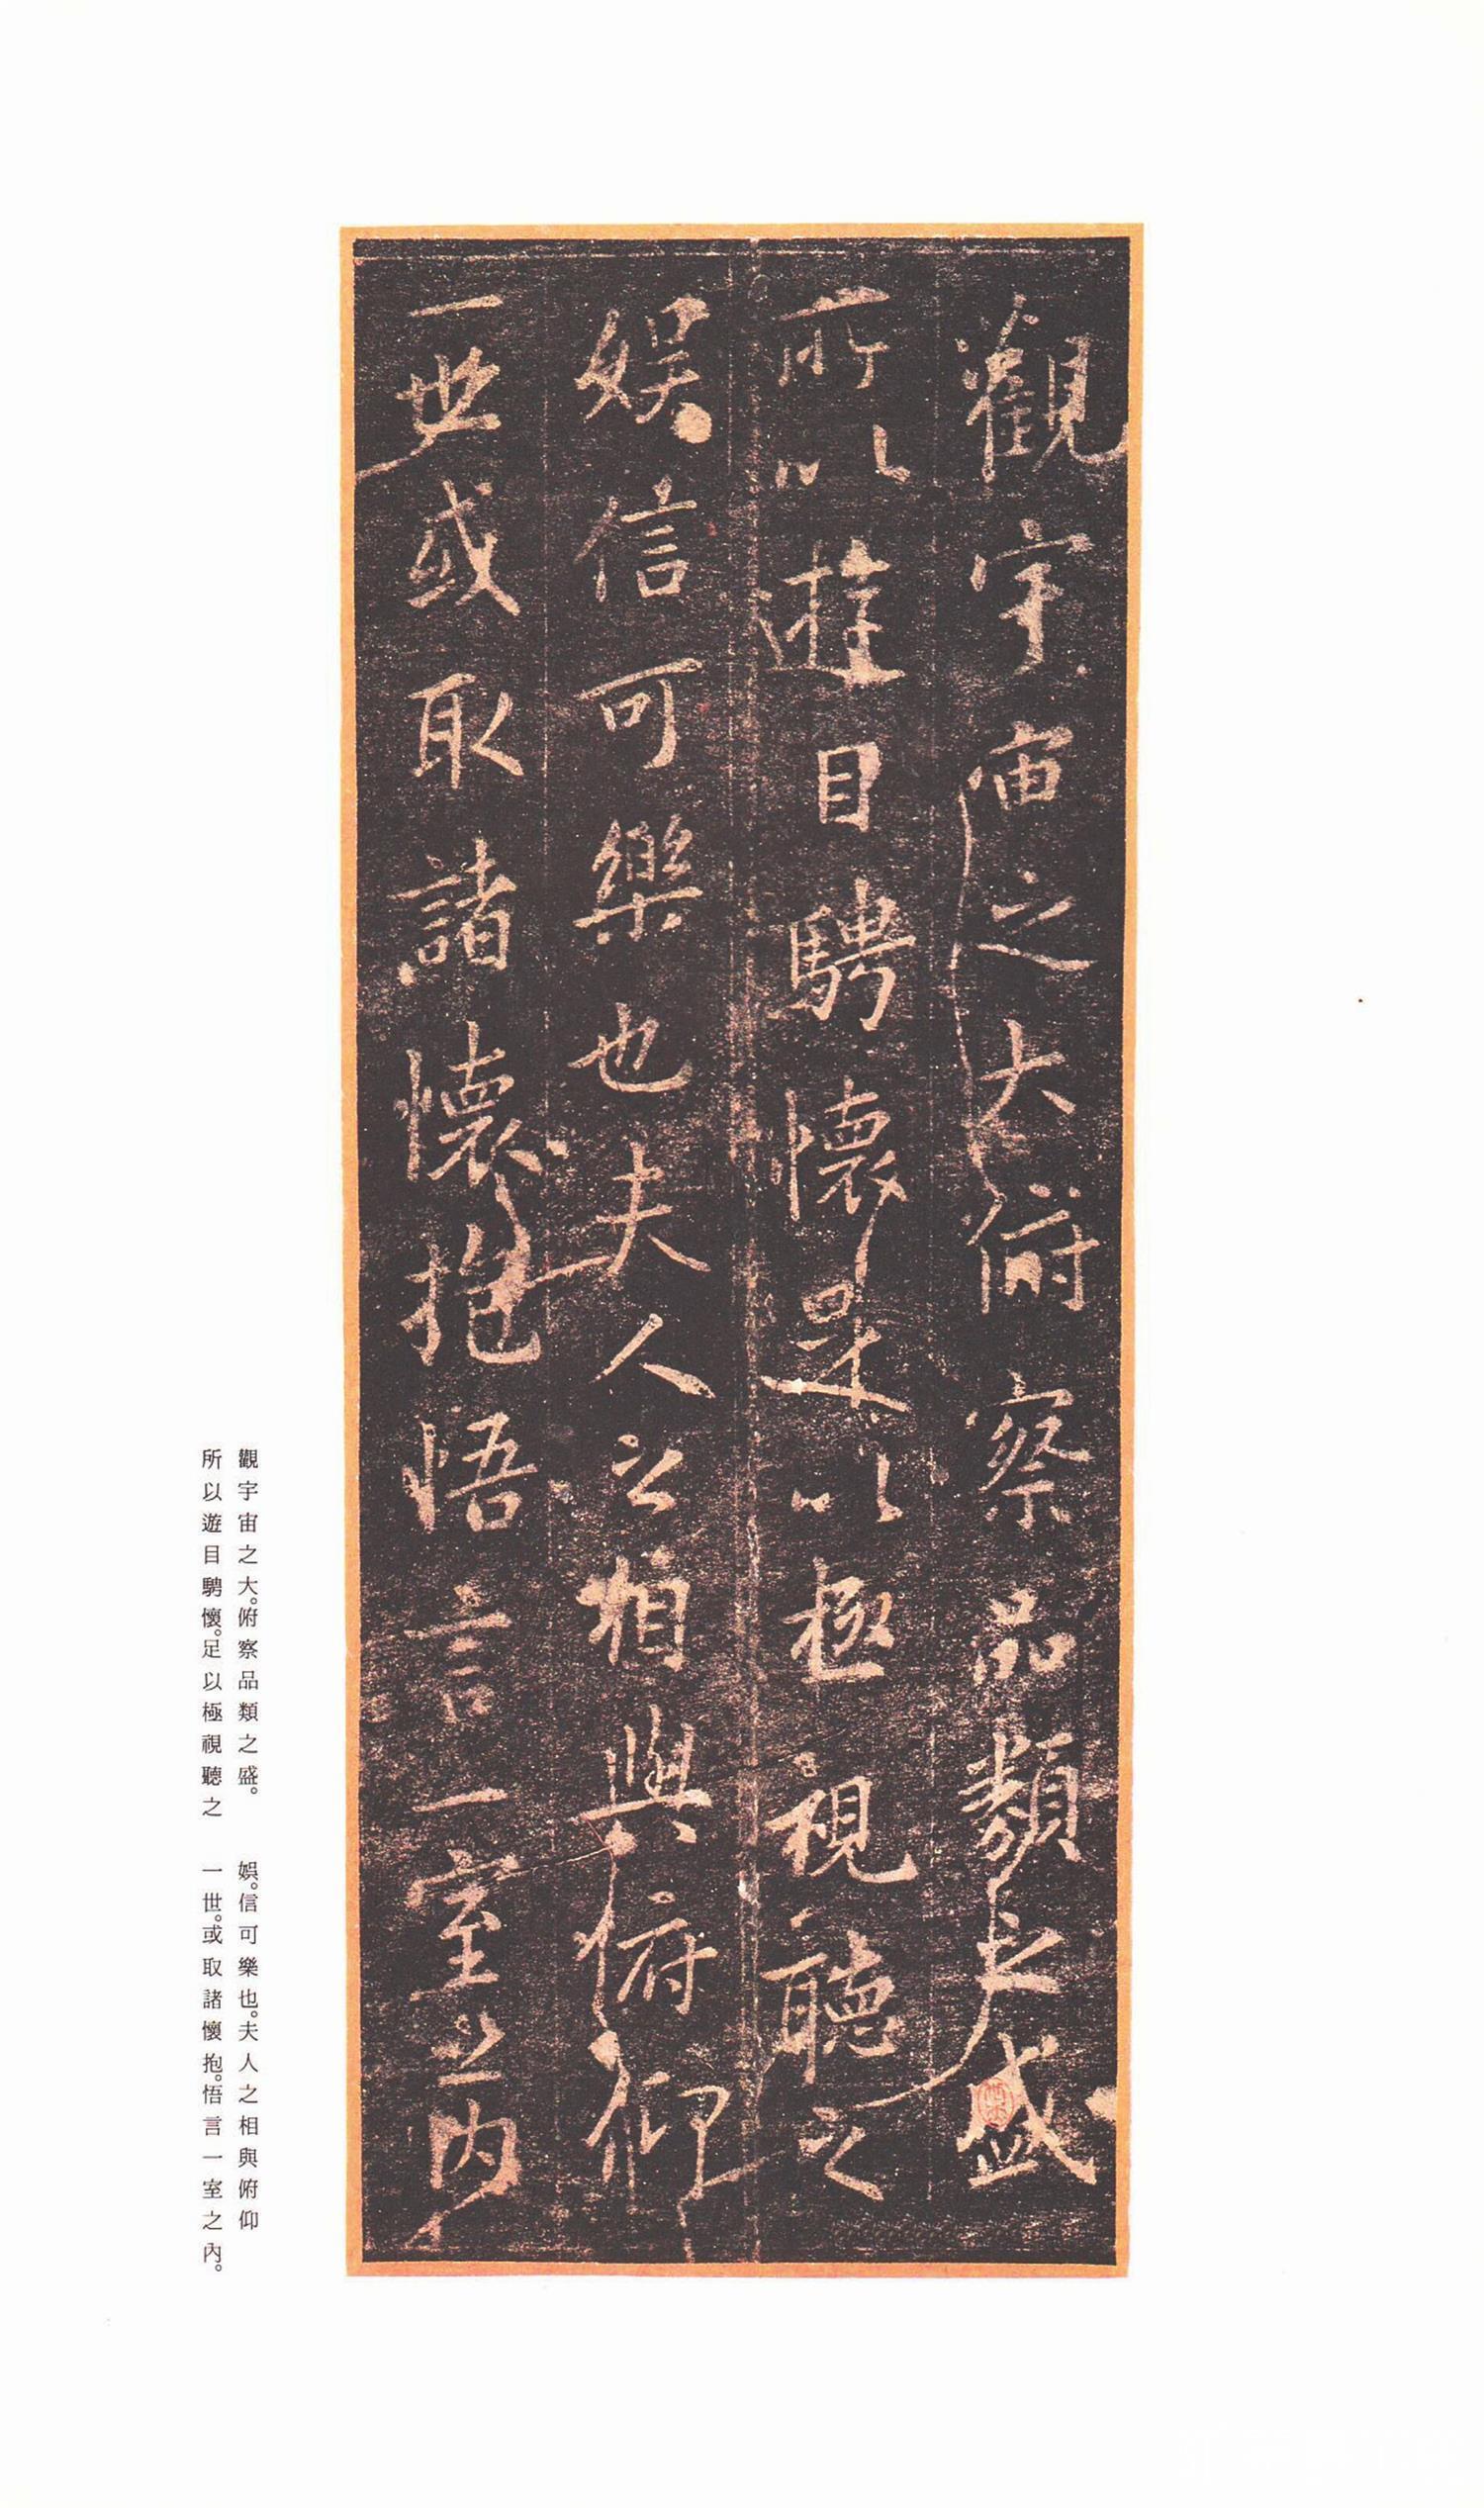 觀宇宙之大俯察品類之盛
所以遊目騁懷足以極視聽之
娱信可樂也夫人之相與俯仰
一世或取諸懷抱悟言一室之内
觀宇宙之大。俯察品類之盛。
所以遊目騁懷。足以極視聽之
娛。信可樂也。夫人之相與俯仰
一世。或取諸懷抱。悟言一室之內。